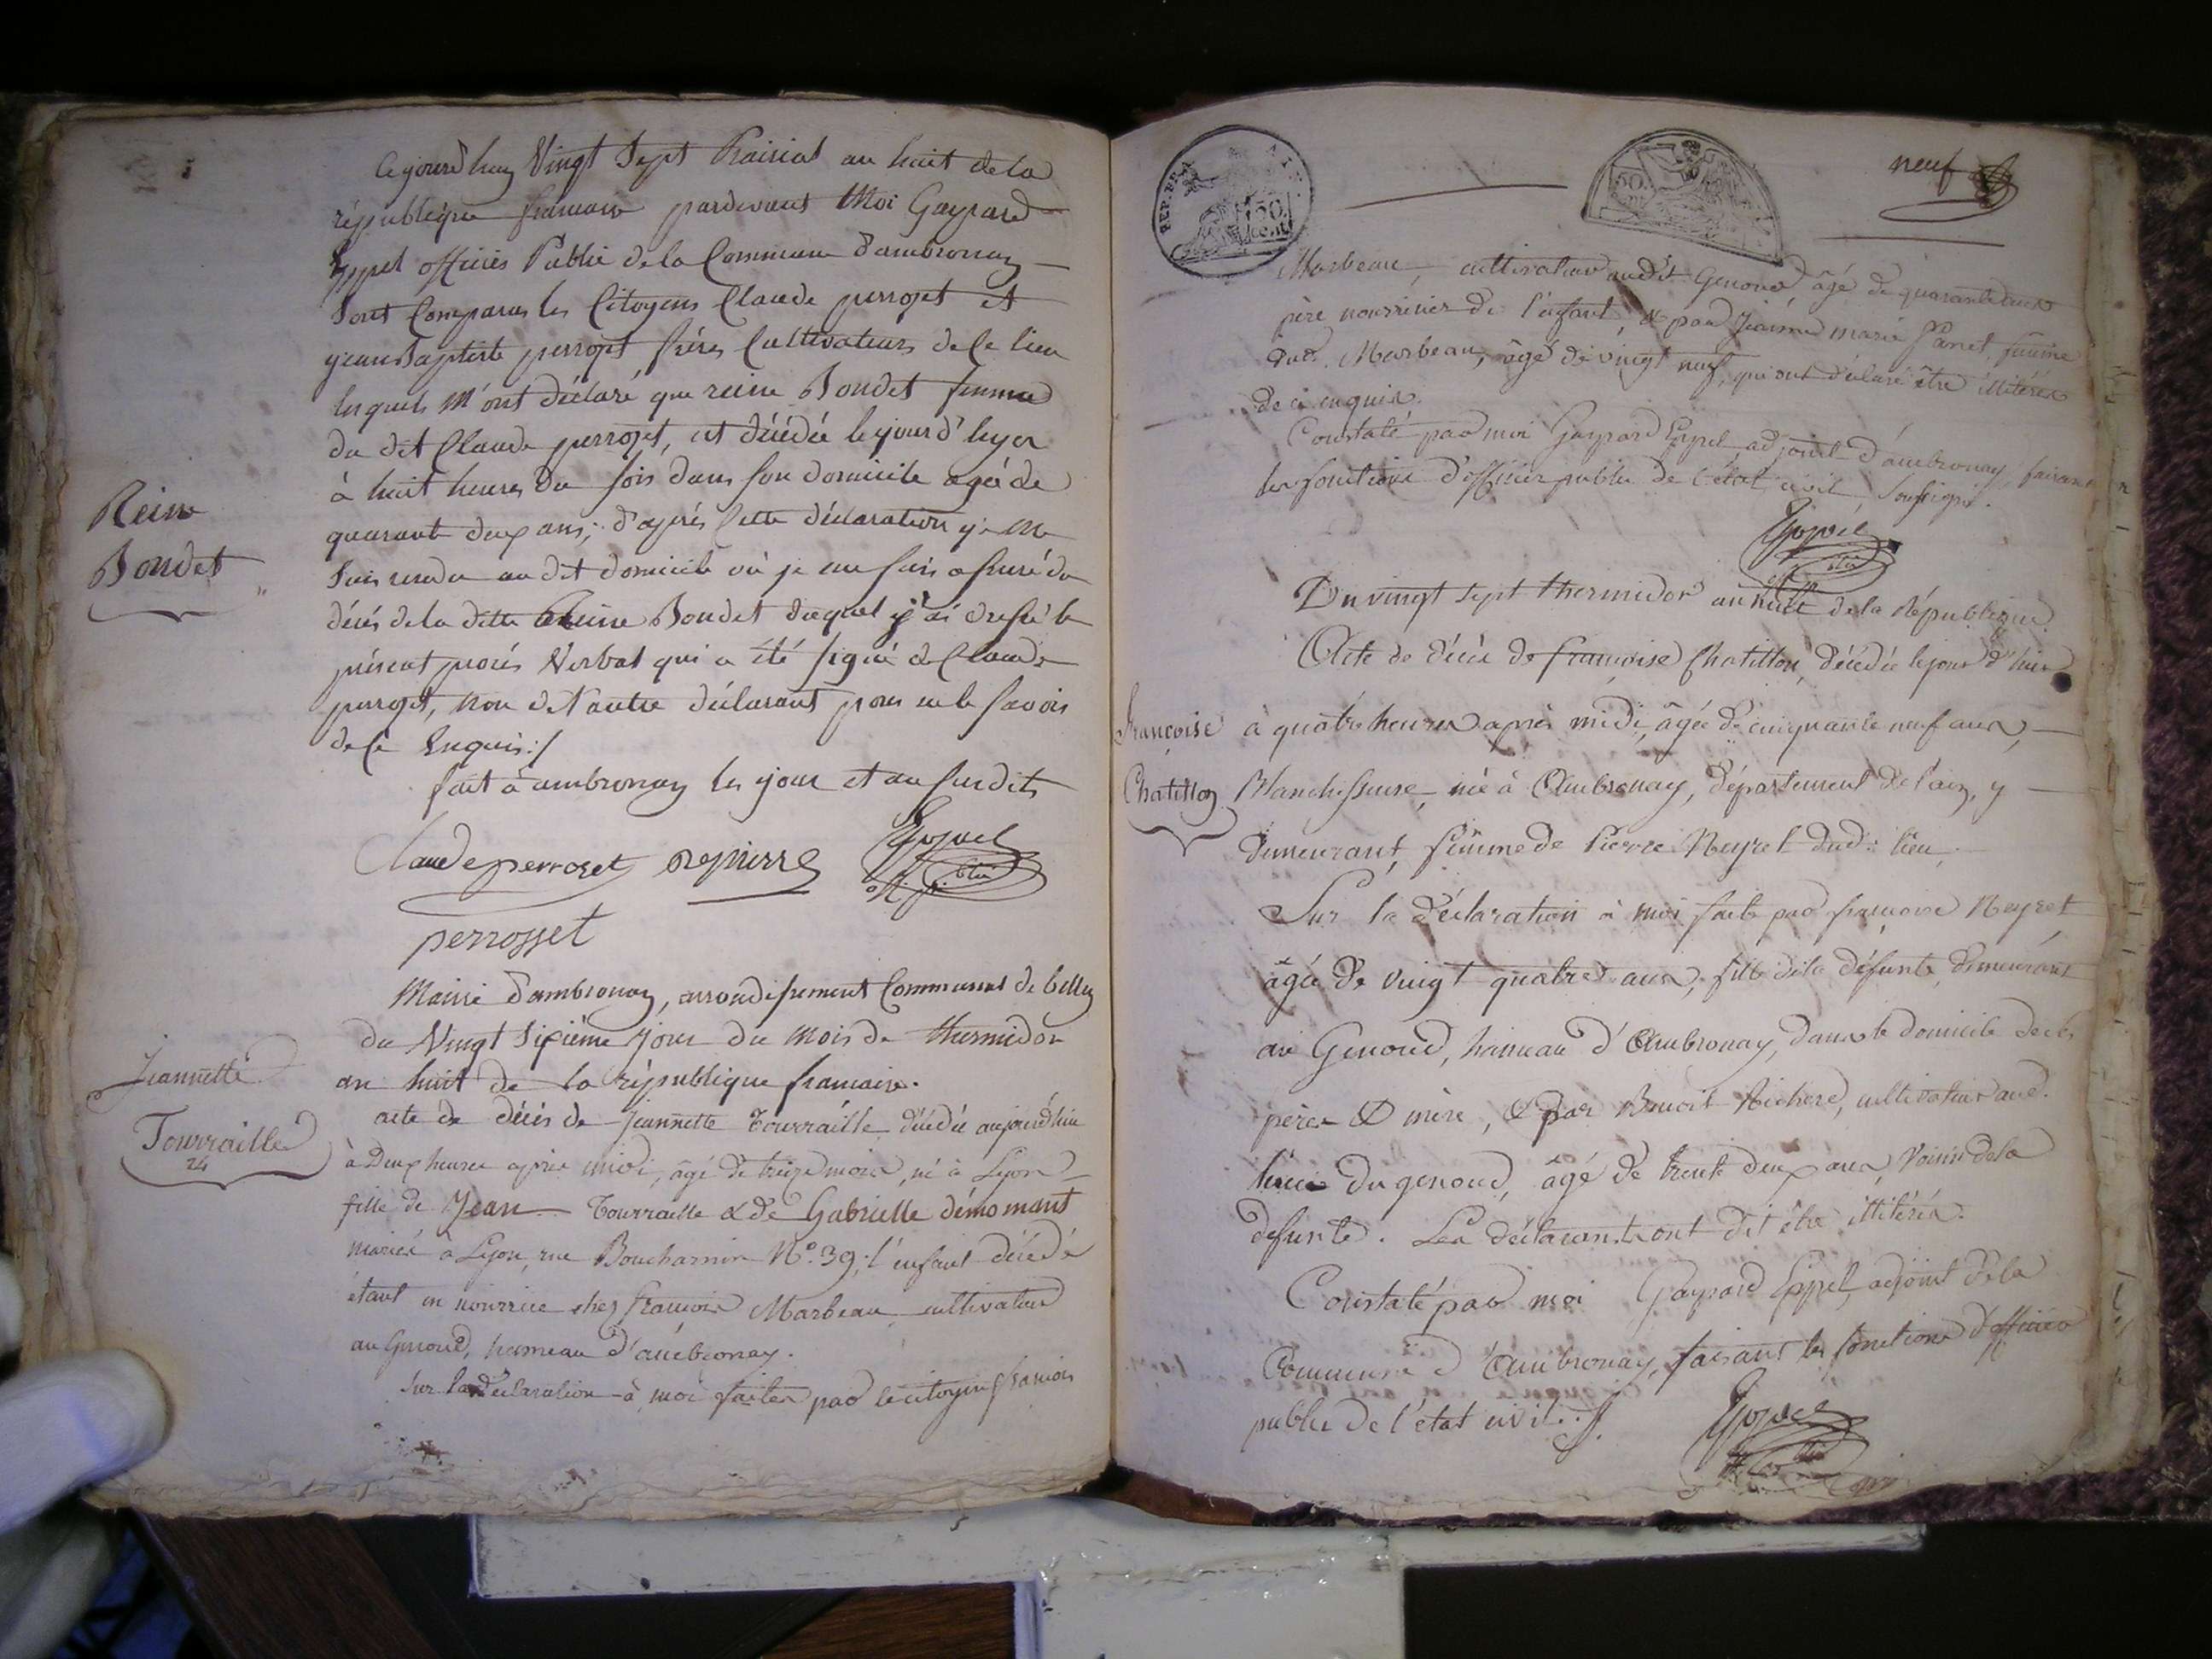 Cejourd'huy Vingt Sept Prairial an huit de la
république francaise pardevant Moi Gaspard
Eppel officier Public de la Commune d'ambronay
Sont Comparus les Citoyens Claude perrozet et
jean Baptiste perrozet frères Cultivateurs de Ce lieu
lesquels M'ont déclaré que reine Bondet femme
du dit Claude perrozet, est décédée le jour d'hyer
à huit heures du soir dans son domicile agée de
Reine
quarante deux ans; d'après Cette déclaration je me
Bondet
suis rendu au dit domicile où je me suis assuré du
décés de la ditte Reine Bondet duquel j'ai dressé le
présent procés Verbal qui a été signé de Claude
perrozet, non de l'autre déclarant pour ne le savoir
de Ce Enquis:/
fait à ambronay les jour et an susdits
Claude perrozet Depierre Eppel
off. p. blic
perrosset
Mairie d'ambronay, arrondissement Communal de belley
du Vingt Sixième jour du Mois de thermidor
Jeannette
an huit de la république francaise.
acte de décés de Jeannette Tourraille, décédée aujourd'hui
Tourraille
24
à Deux heures après midi, âgé de treize mois, né à Lyon
fille de Jean Tourraille & de Gabrielle démomant
mariés à Lyon, rue Boucharnin N.º 39; l'enfant décédé
étant en nourrice chez françois Marbeau cultivateur
au Genoud, hameau d'ambronay.
Sur la déclaration à moi faites par le citoyen francois
REP. FRA
50
cent
50
neuf
Marbeau, cultivateur audit Genoud, âgé de quarante
père nourricier de l'enfant, & par Jeanne marie Panet, femme
dud. Marbeau, âgé de vingt neuf, qui ont déclaré être illitérés
de ce enquis.
Constaté par moi Gaspard Eppel, adjoint d'ambronay, faisant
les fonctions d'officier public de l'état civil, soussigné.
Eppel
Du vingt sept thermidor an huit de la République.
Acte de décès de françoise Chatillon, décédée le jour d'hier
Françoise
à quatre heures après midi, âgée de cinquante neuf ans,
Chatillon
Blanchisseuse, née à Ambronay, département de l'ain, y
demeurant, femme de Pierre Neyret dud. lieu.
Sur la déclaration à moi faite par françoise Neyret
âgée de vingt quatre ans, fille de la défunte, demeurant
au Genoud, hameau d'Ambronay, dans le domicile de ses
père & mère, & par Benoit Richerd, cultivateur aud.
lieu du genoud, âgé de trente deux ans, Voisin de la
defunte. Les déclarants ont dit être illitérés.
Constaté par moi Gaspard Eppel, adjoint de la
Commune d'Ambronay, faisant les fonctions d'officier
public de l'état civil ./.
Eppel